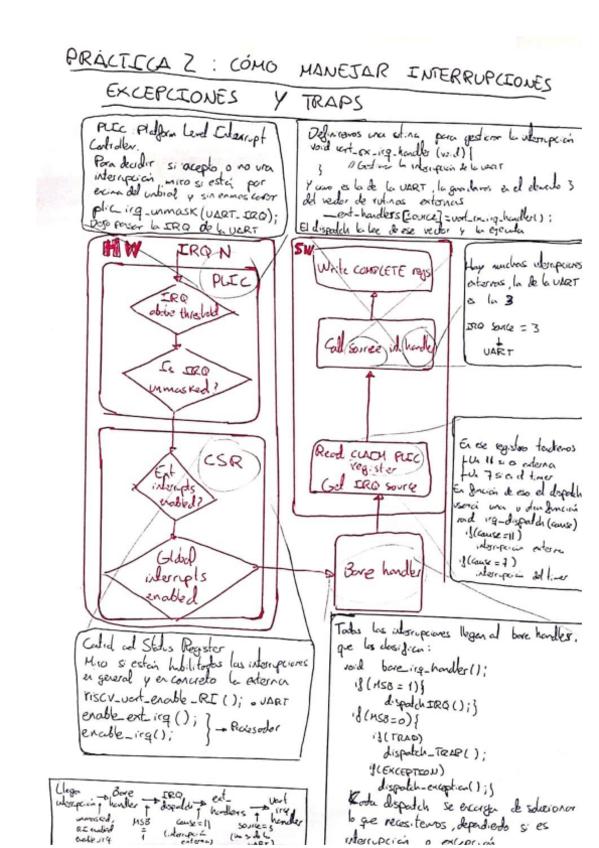 PRÁCTICA 2 : CÓMO MANEJAR INTERRUPCIONES
EXCEPCIONES Y TRAPS
PLIC: Platform Level Interrupt
Controller.
Para decidir si acepto, o no una
interrupción miro si está por
encima del umbral y sin enmascarar
plic_irq_unmask(UART_IRQ);
Dejo pasar la IRQ de la UART
Definiremos una rutina para gestionar la interrupción
void uart_rx_irq_handler (void) {
// Gestionar la interrupción de la uart
}
Y como es la de la UART, la guardamos en el elemento 3
del vector de rutinas externas
_ext_handlers[source]=uart_rx_irq_handler();
El dispatch la lee de ese vector y la ejecuta
HW
IRQ N
PLIC
IRQ
above threshold
Is IRQ
unmasked?
CSR
Ext
interrupts
enabled?
Global
interrupts
enabled
SW
Write COMPLETE regs
Call source id handler
Read CLAIM PLIC
register
Get IRQ source
Base handler
Hay muchas interrupciones
externas, la de la UART
es la 3
IRQ source = 3
UART
En ese registro tendremos
Un 11 si es externa
Un 7 si es el timer
En función de eso el dispatch
usará una u otra función
void irq_dispatch(cause)
if(cause=11)
interrupción externa
if(cause=7)
interrupción del timer
Control and Status Register
Miro si están habilitadas las interrupciones
en general y en concreto la externa
riscv_uart_enable_RI(); → UART
enable_ext_irq();
enable_irq(); } → Procesador
Todas las interrupciones llegan al base handler,
que las clasifica:
void base_irq_handler();
if(MSB = 1){
dispatchIRQ();}
if(MSB=0){
if(TRAP)
dispatch_TRAP();
if(EXCEPTION)
dispatch_exception();}
Cada dispatch se encarga de solucionar
lo que necesitemos, dependiendo si es
interrupción o excepción
Llega interrupción → Base handler → IRQ dispatch → ext_handlers → uart irq handler
unmasked,
enable irq
MSB = 1
cause=11
(interrupción
externa)
source=3
UART)